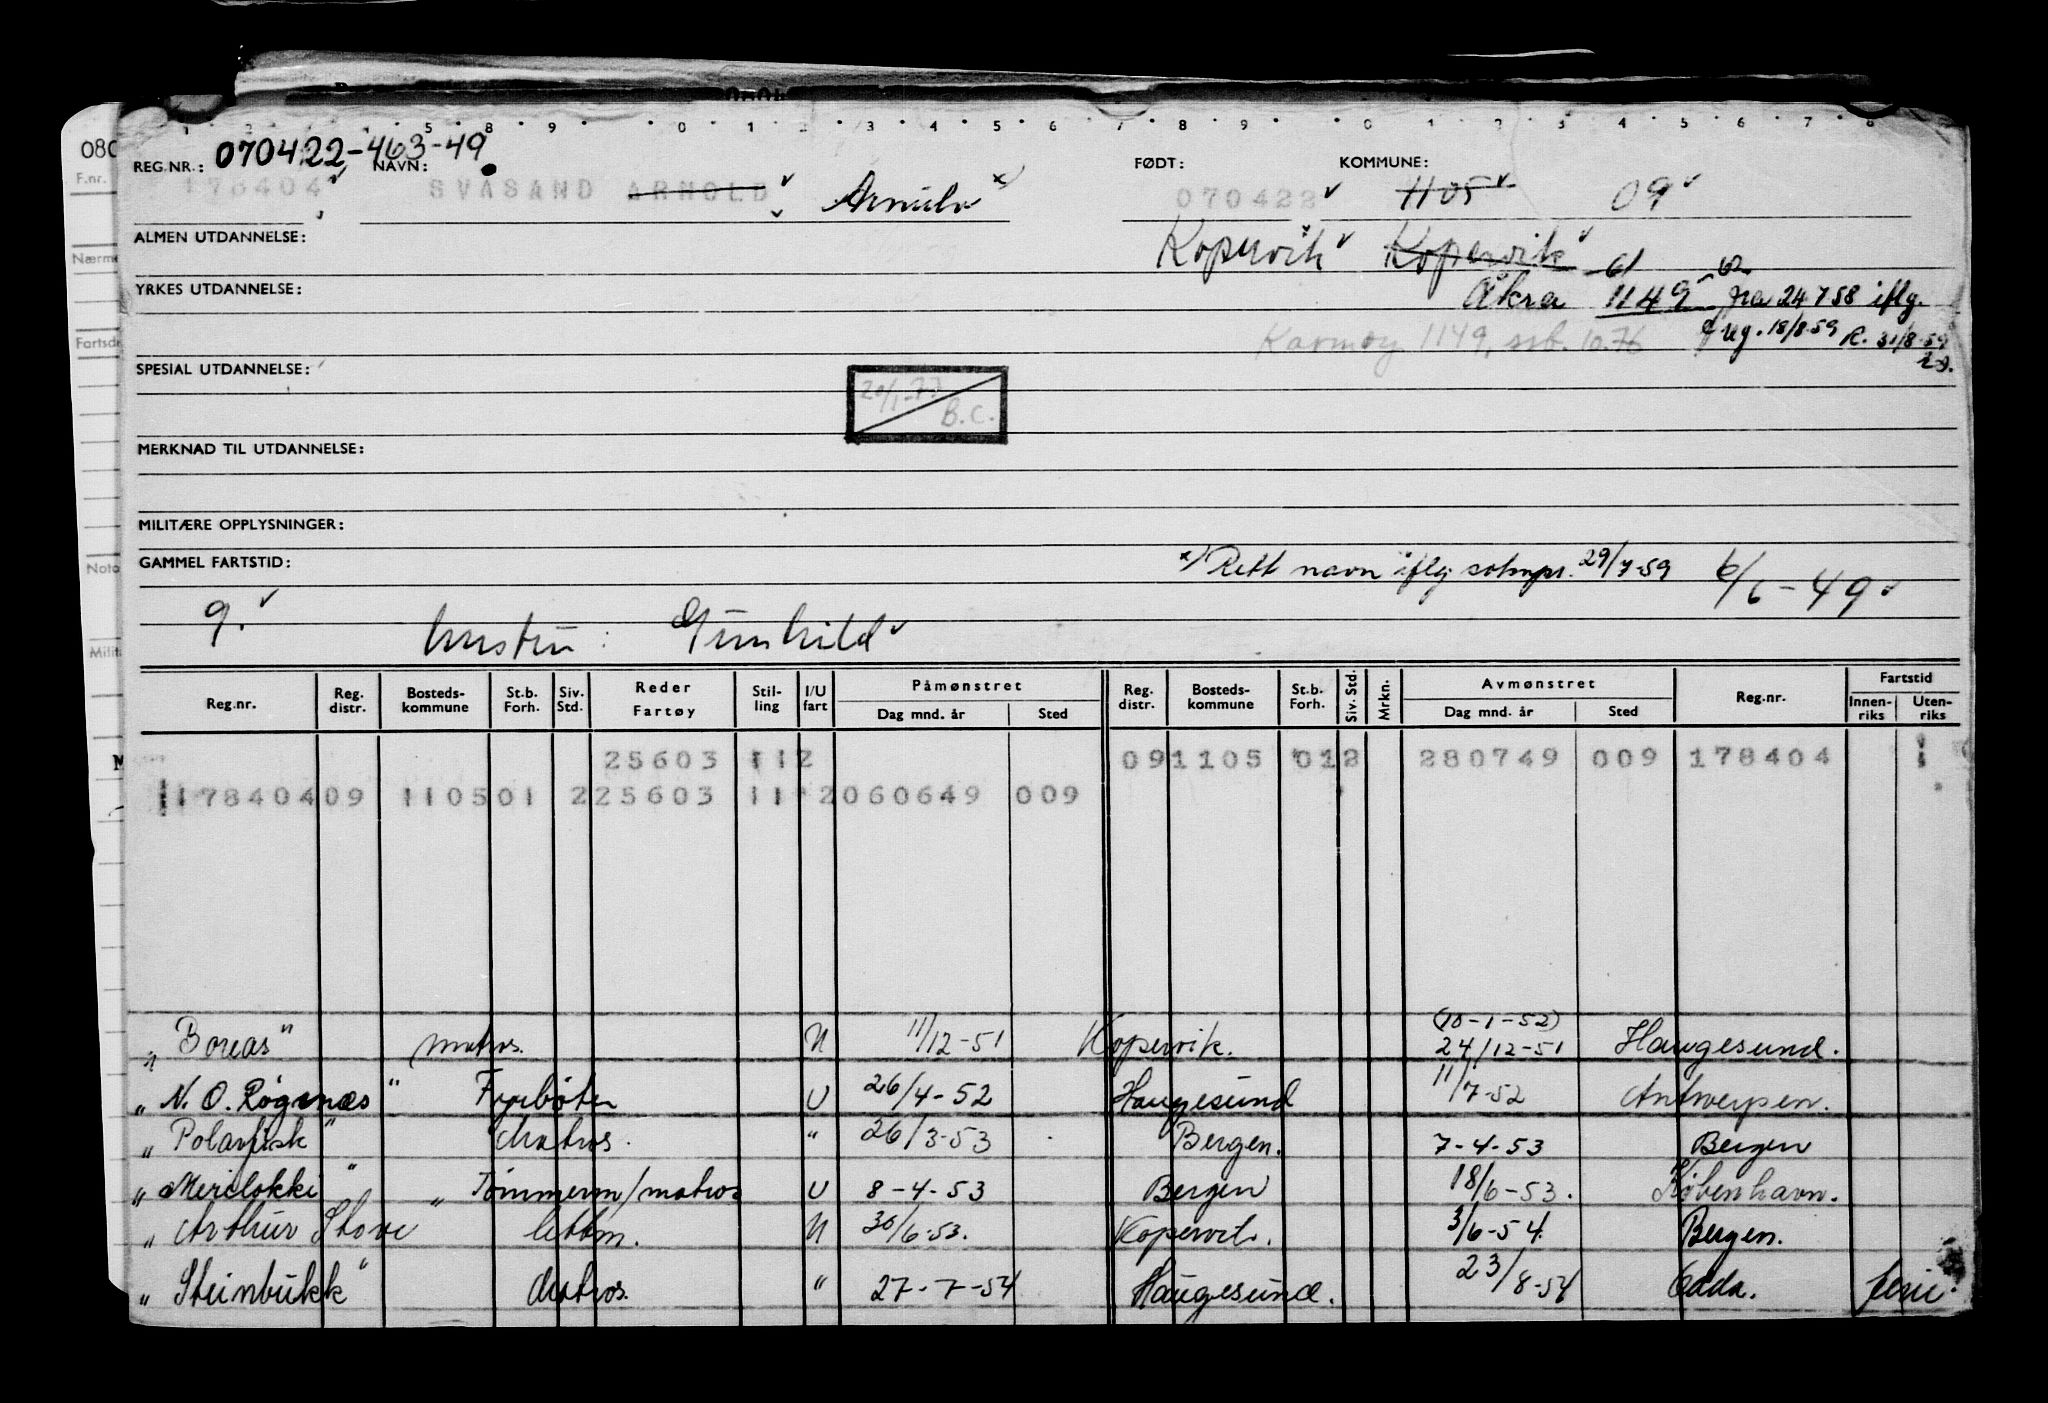 1 2 5 8 9 0 1 2 3 4 5 6 7 8 9 0 1 2 3 4 5 6 7 8
080
REG.NR.: 070422-463-49 NAVN: FØDT: KOMMUNE:
178404 SVASAND ARNOLD 070422 1105 09
F.nr.
ALMEN UTDANNELSE: Kopervik Kopervik
Nærme
YRKES UTDANNELSE: Åkra 1149 fra 24 7 58 iflg.
Karmøy 1149, ssb. 10.76 18/8.59 R. 31/8-59
Fartsde
SPESIAL UTDANNELSE:
20/1-77 B.C.
MERKNAD TIL UTDANNELSE:
MILITÆRE OPPLYSNINGER:
GAMMEL FARTSTID: x) Rett navn iflg 29/7-59 6/6-49
Noto
g. hustru: Gunhild
Milit
Reg.nr. Reg. distr. Bosteds-kommune St.b. Forh. Siv. Std. Reder Fartøy Stil-ling I/U fart Påmønstret Dag mnd. år Sted Reg. distr. Bosteds-kommune St.b. Forh. Siv. Std. Mrkn. Avmønstret Dag mnd. år Sted Reg.nr. Fartstid Innen-riks Uten-riks
25603 112 091105 012 280749 009 178404 1
1178404 09 1105 01 2 25603 11 2 060649 009
(10-1-52)
"Boreas" matros. N 11/12-51 Kopervik. 24/12-51 Haugesund.
"N. O. Røgenæs" Fyrbøter U 26/4-52 Haugesund 11/7-52 Antwerpen.
"Polarfisk" Matros. " 26/3-53 Bergen. 7-4-53 Bergen
"Merclokki" Tømmerm/matros U 8-4-53 Bergen 18/6-53. København.
"Arthur Stove" lettm. N 30/6-53. Kopervik. 3/6-54. Bergen.
"Steinbukk" Matros. " 27-7-54 Haugesund. 23/8-54 Odda. ferie.